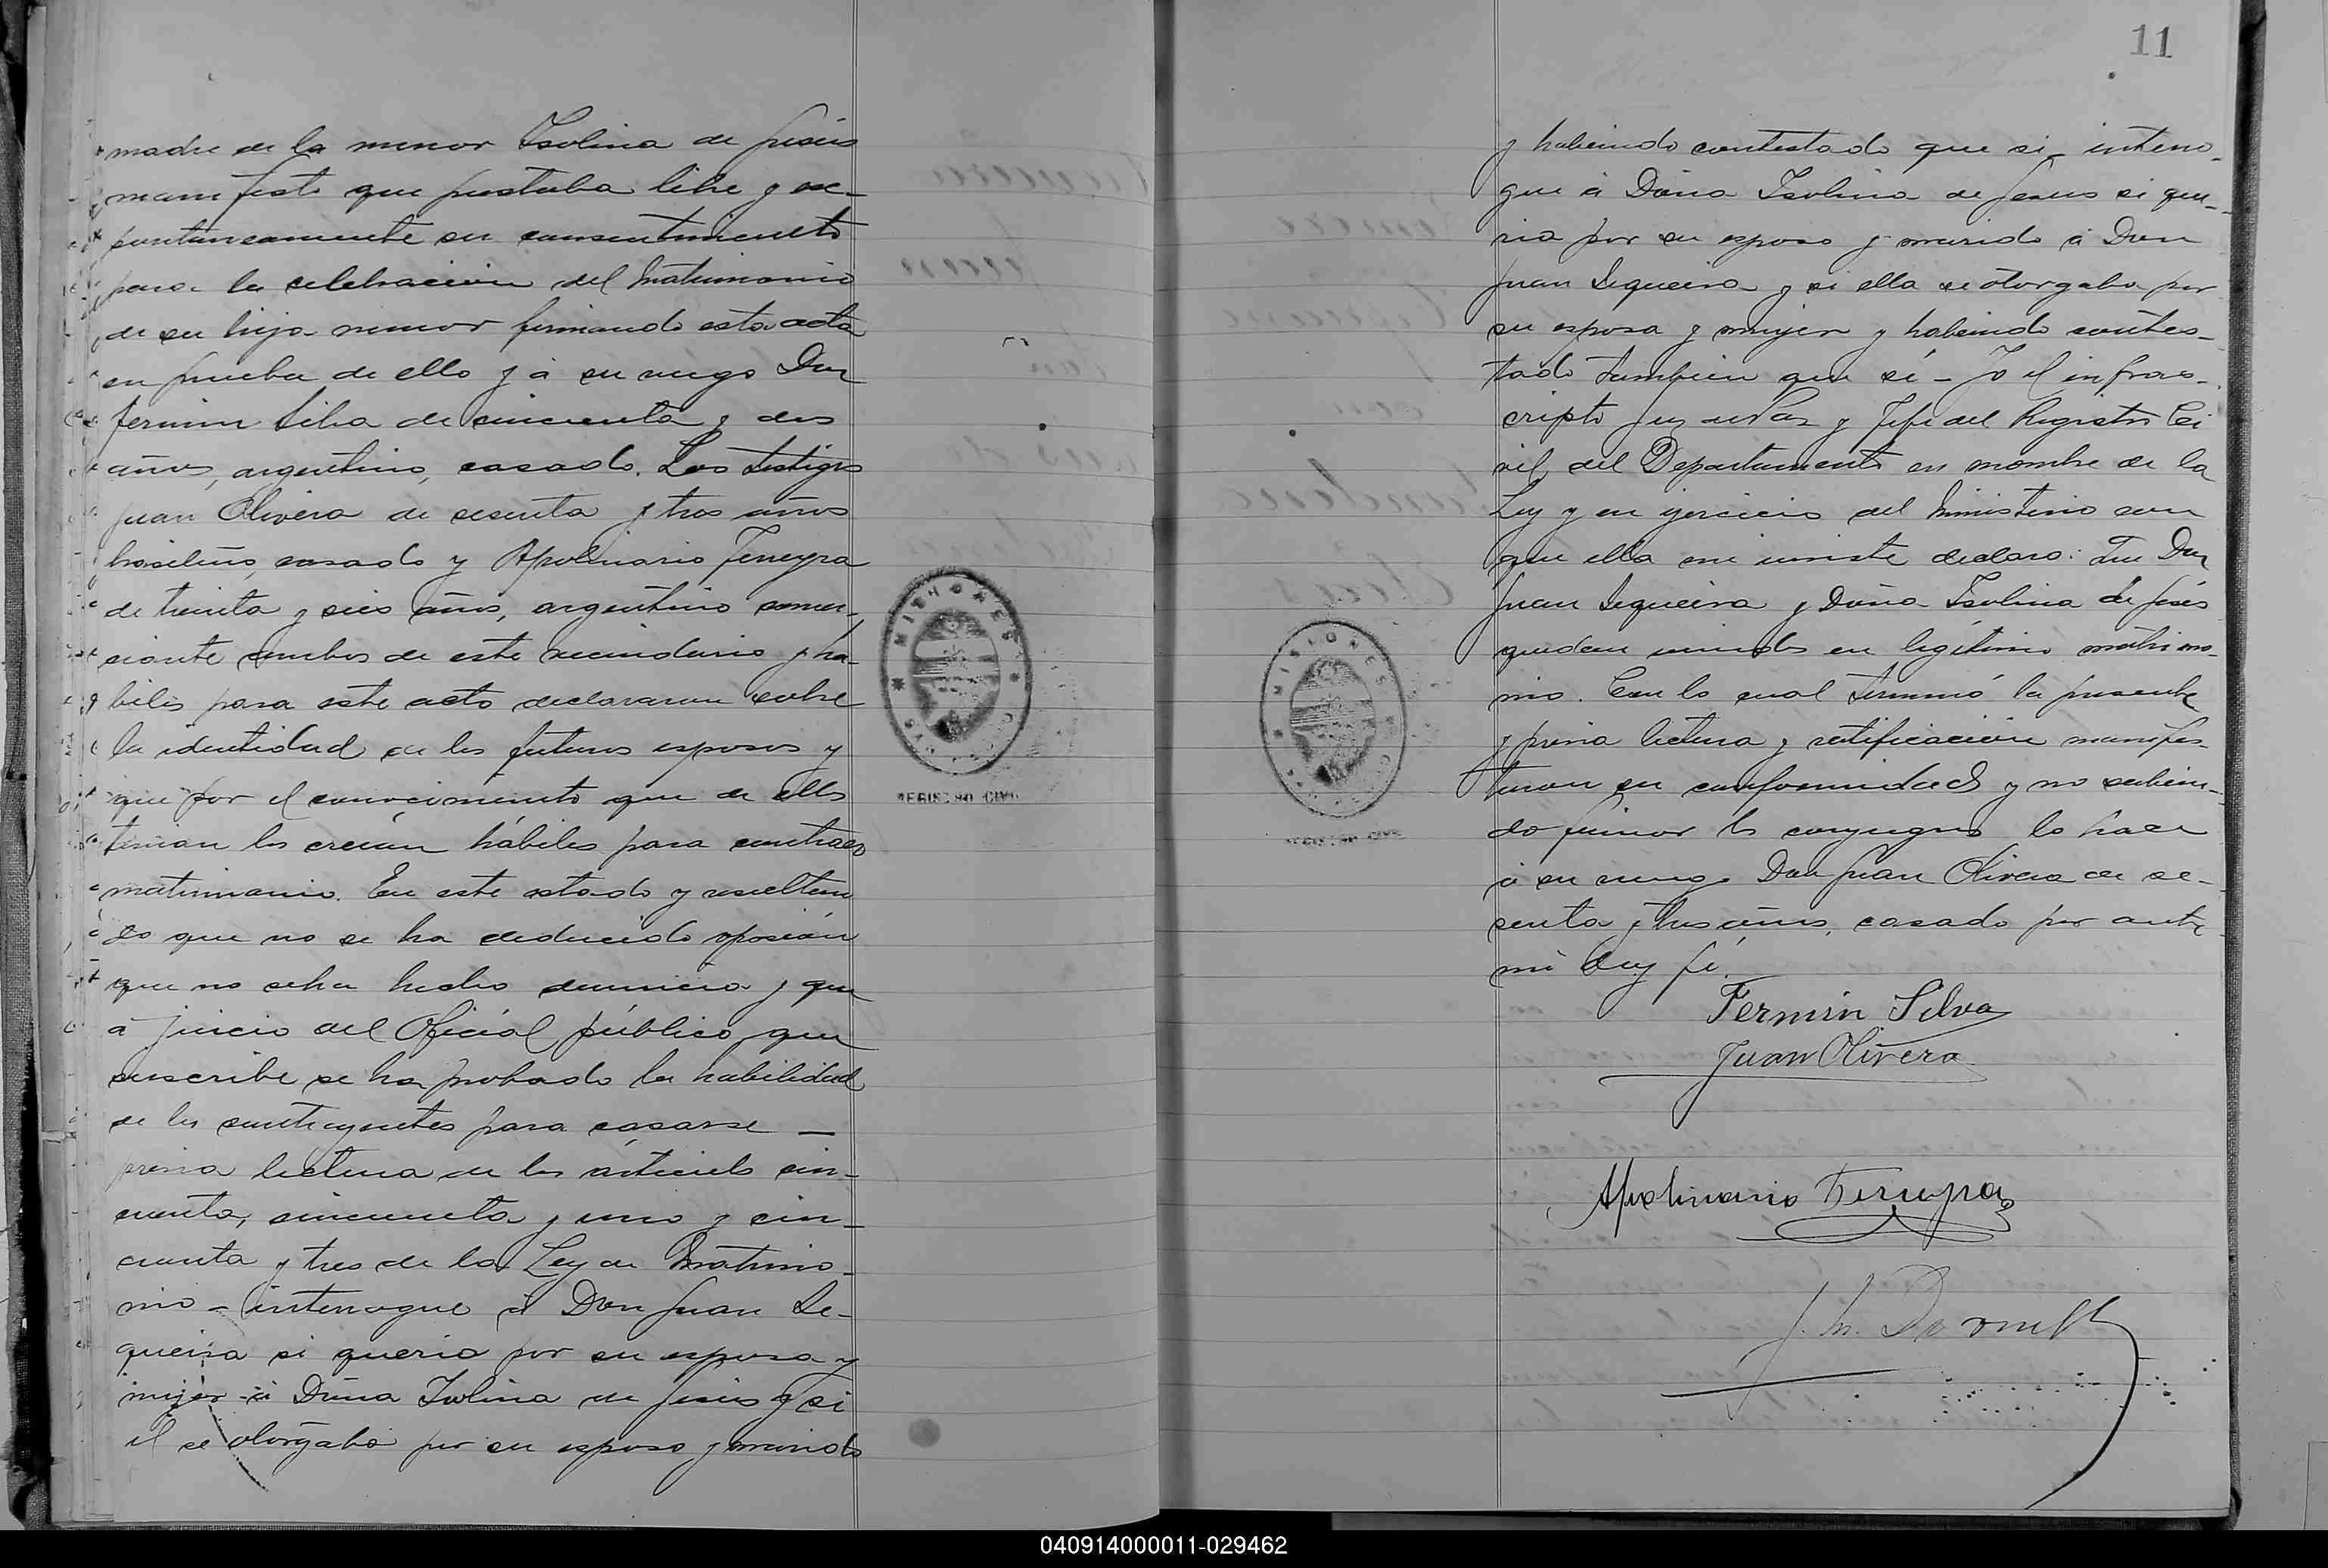 madre de la menor Isolina de Jesús
manifestó que prestaba libre y es-
pontaneamente su consentimiento
para la celebración del Matrimonio
de su hija menor firmando esta acta
en prueba de ello y á su ruego Don
Fermin Silva de cincuenta y dos
años, argentino, casado. Los testigos
Juan Olivera de sesenta y tres años
brasileño, casado y Apolinario Ferreyra
de treinta y seis años, argentino comer-
ciante ambos de este vecindario y há-
biles para este acto declararon sobre
la identidad de los futuros esposos y
que por el conocimiento que de ellos
tenian los creían hábiles para contraer
matrimonio. En este estado y resultan
do que no se ha deducido oposición
que no se ha hecho denuncia y que
á juicio del Oficial público que
suscribe se ha probado la habilidad
de los contrayentes para casarse —
previa lectura de los artículos cin-
cuenta, cincuenta y uno y cin-
cuenta y tres de la Ley de Matrimo-
nio - interrogué á Don Juan Se-
queira si queria por su esposa y
mujer á Doña Isolina de Jesús y si
él se otorgaba por su esposo y marido
11
y habiendo contestado que si - interro-
gué á Doña Isolina de Jesus si que-
ria por su esposo y marido á Don
Juan Sequeira y si ella se otorgaba por
su esposa y mujer y habiendo contes-
tado tambien que sí - Yo el infras-
cripto Juez de Paz y Jefe del Registro Ci
vil del Departamento en nombre de la
Ley y en ejercicio del Ministerio con
que ella me inviste declaro: Que Don
Juan Sequeira y Doña Isolina de Jesús
quedan unidos en legítimo matrimo-
nio. Con lo cual terminó la presente
y previa lectura y ratificación manifes-
taron su conformidad y no sabien-
do firmar los conyuges lo hace
á su ruego Don Juan Olivera de se-
senta y tres años, casado por ante
mi doy fé.
Fermin Silva
Juan Olivera
Apolinario Ferreyra
J. M.
MISIONES
REGISTRO CIVIL
MISIONES
REGISTRO CIVIL
040914000011-029462